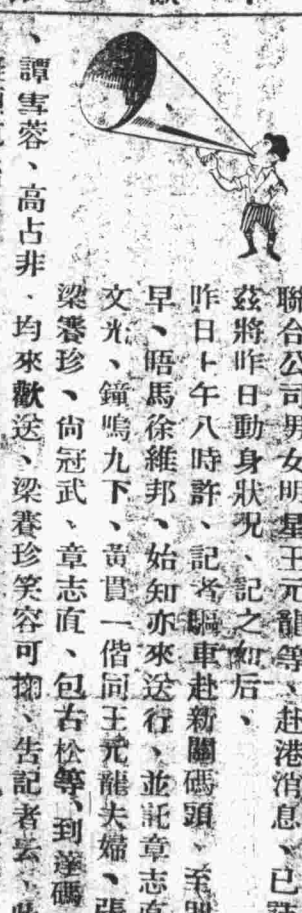 聯合公司男女明星王元龍等、赴港消息、已
茲將昨日動身狀况、記之如后、
昨日上午八時許、記者驅車赴新關碼頭、至
早、晤馬徐維邦、始知亦來送行、並託章志直
文光、鐘鳴九下、黃貫一偕同王元龍夫婦、張
梁賽珍、尙冠武、章志直、包古松等、到達碼
、譚雪蓉、高占非、均來歡送、梁賽珍笑容可掬、告記者云、此